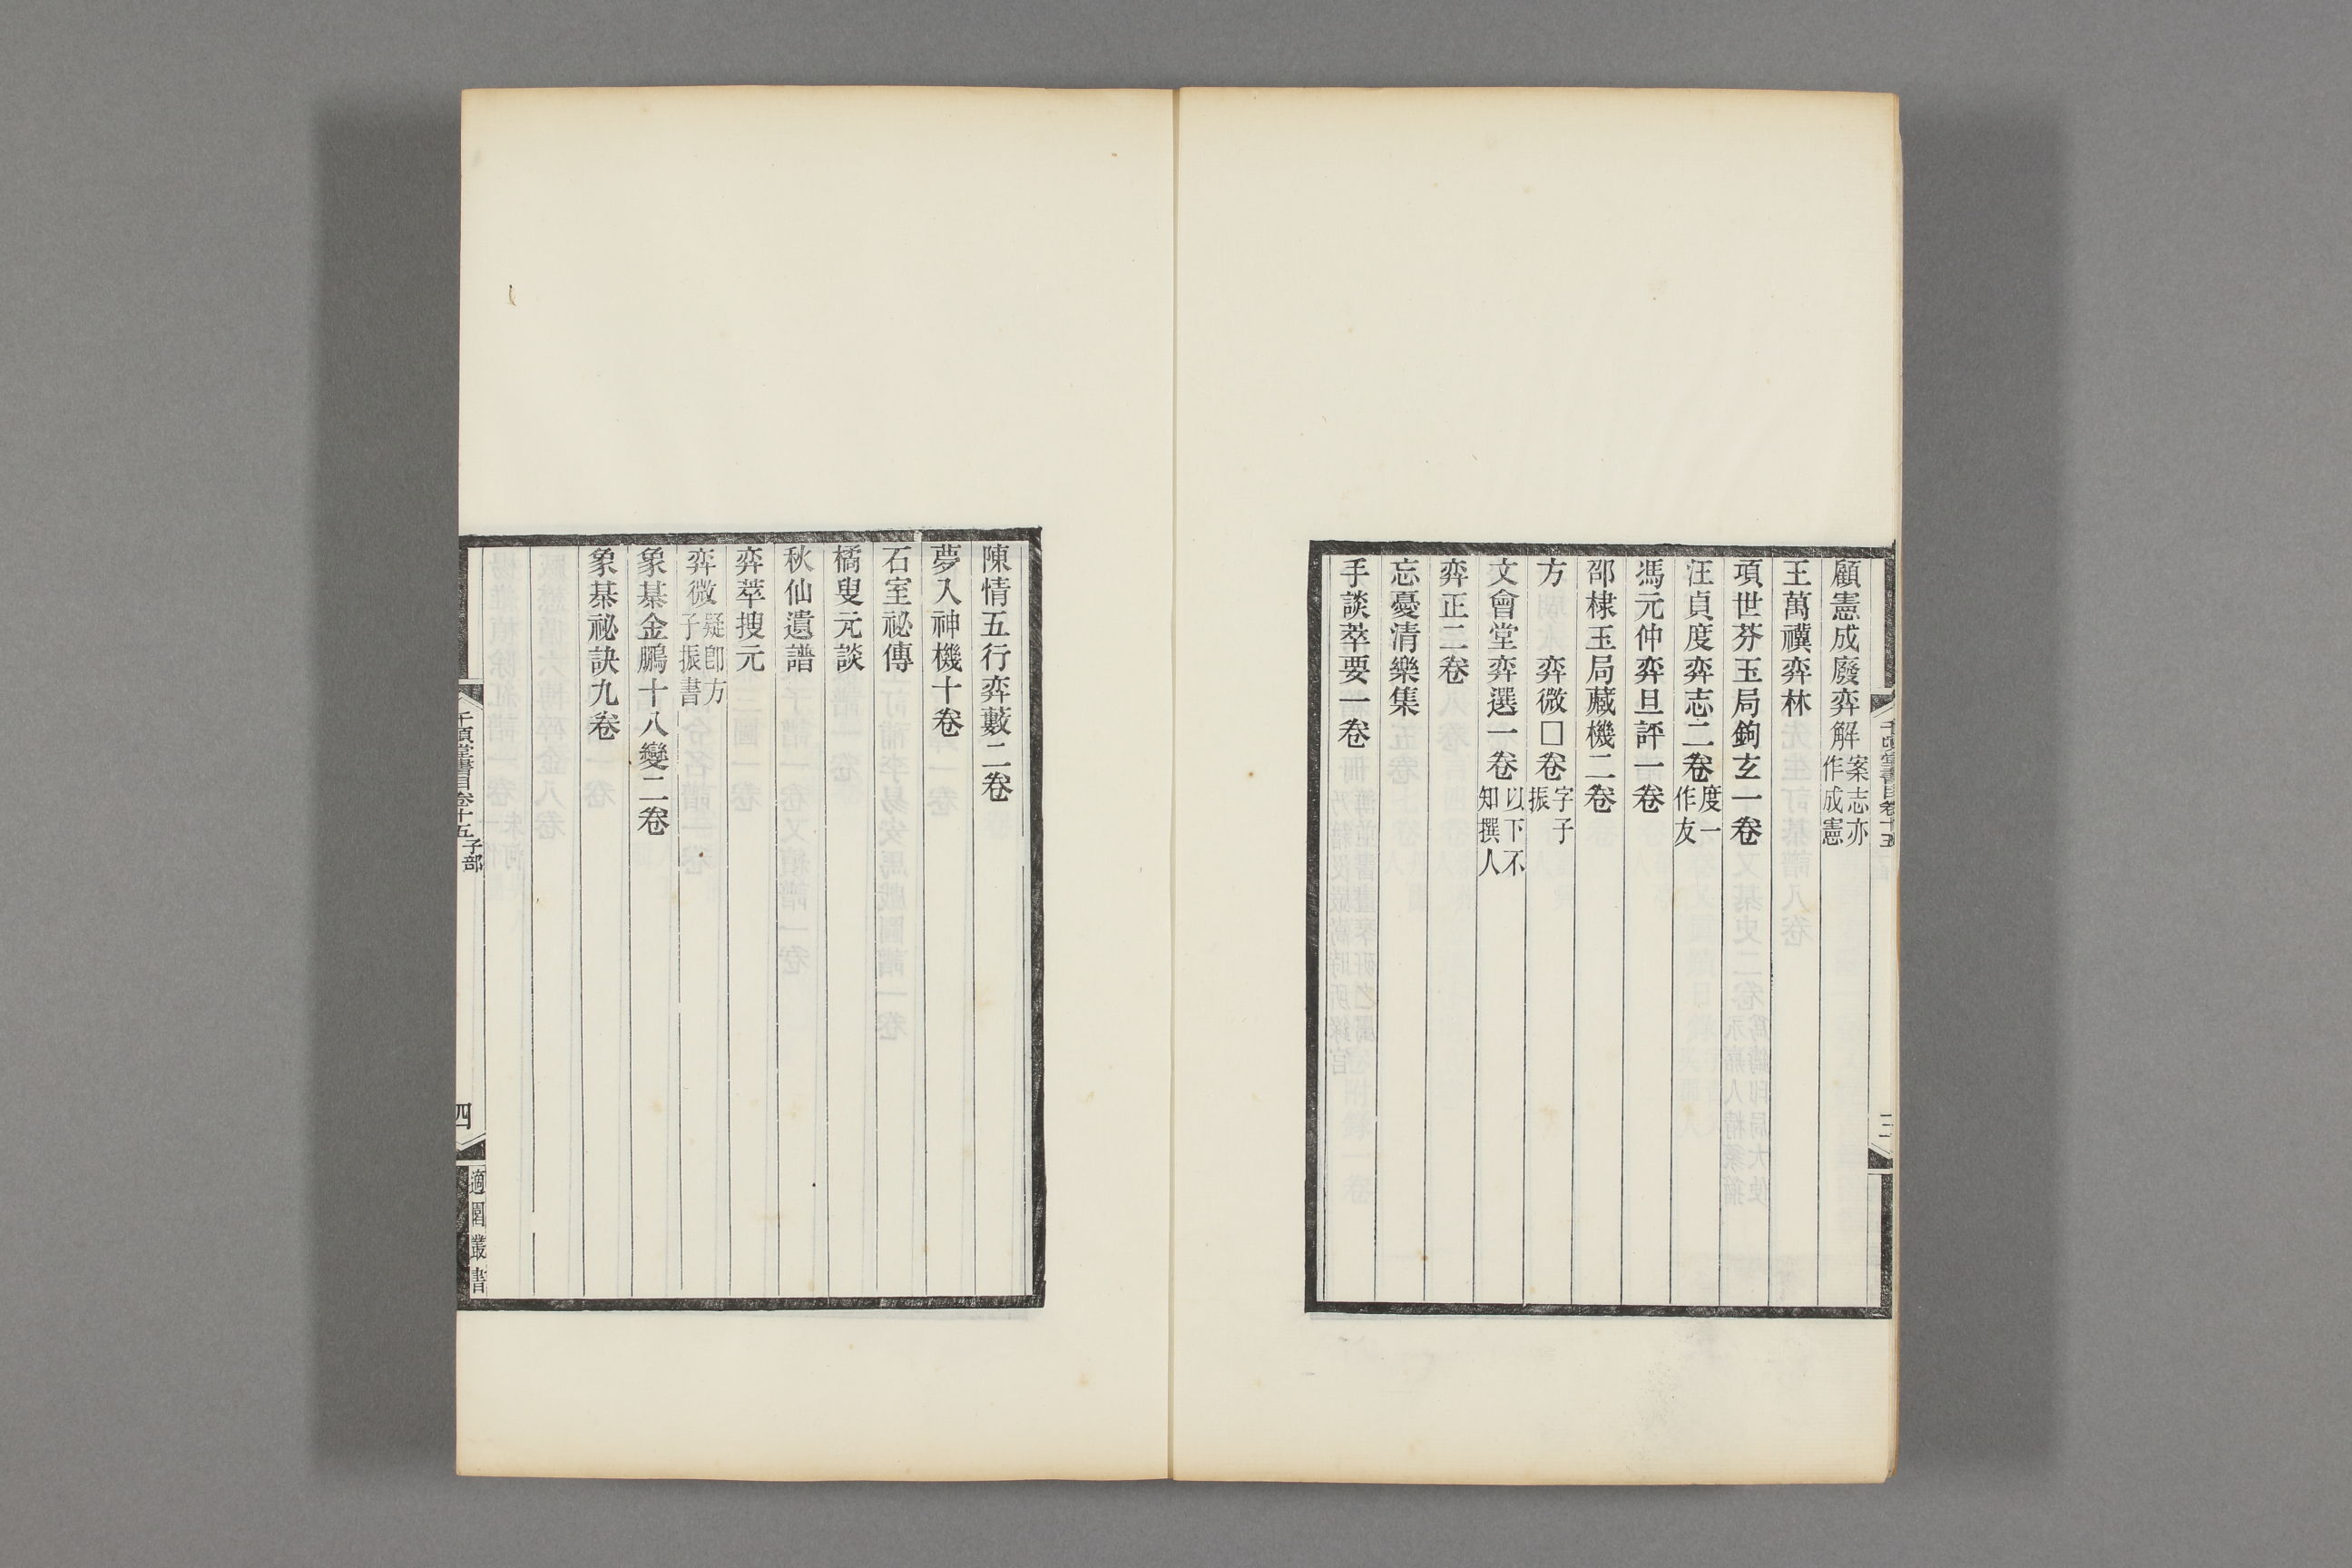 顧憲成廢弈解案志亦作成憲
王萬禩弈林
項世芬玉局鉤玄一卷
汪貞度弈志二卷度一作友
馮元仲弈旦評一卷
邵棣玉局藏機二卷
方　弈微□卷字子振
文會堂弈選一卷以下不知撰人
弈正二卷
忘憂清樂集
手談萃要一卷
千頃堂書目卷十五
三
陳情五行弈藪二卷
夢入神機十卷
石室祕傳
橘叟元談
秋仙遺譜
弈萃搜元
弈微疑卽方子振書
象棊金鵬十八變二卷
象棊祕訣九卷
千頃堂書目卷十五 子部
四
適園叢書